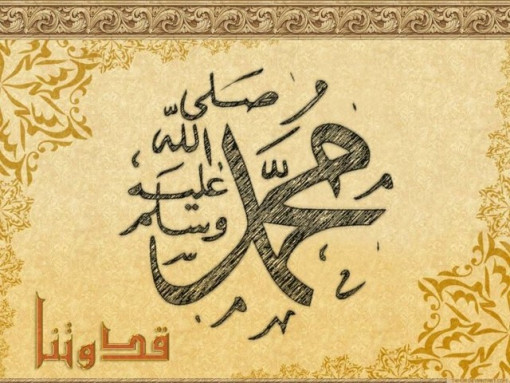 محمد
صلى
الله
عليه
وسلم
قدوتنا